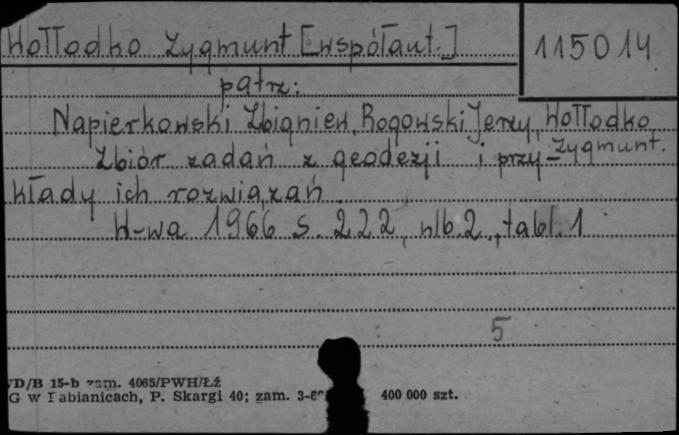 Wołłodko Zygmunt [współaut.]
115014
patrz:
Napierkowski Zbigniew, Rogowski Jerzy, Wołłodko
Zygmunt.
Zbiór zadań z geodezji i przy-
kłady ich rozwiązań.
W-wa 1966 s. 222, nlb. 2, tabl. 1
5
VD/B 15-b zam. 4065/PWH/Łż
G w Pabianicach, P. Skargi 40; zam. 400 000 szt.